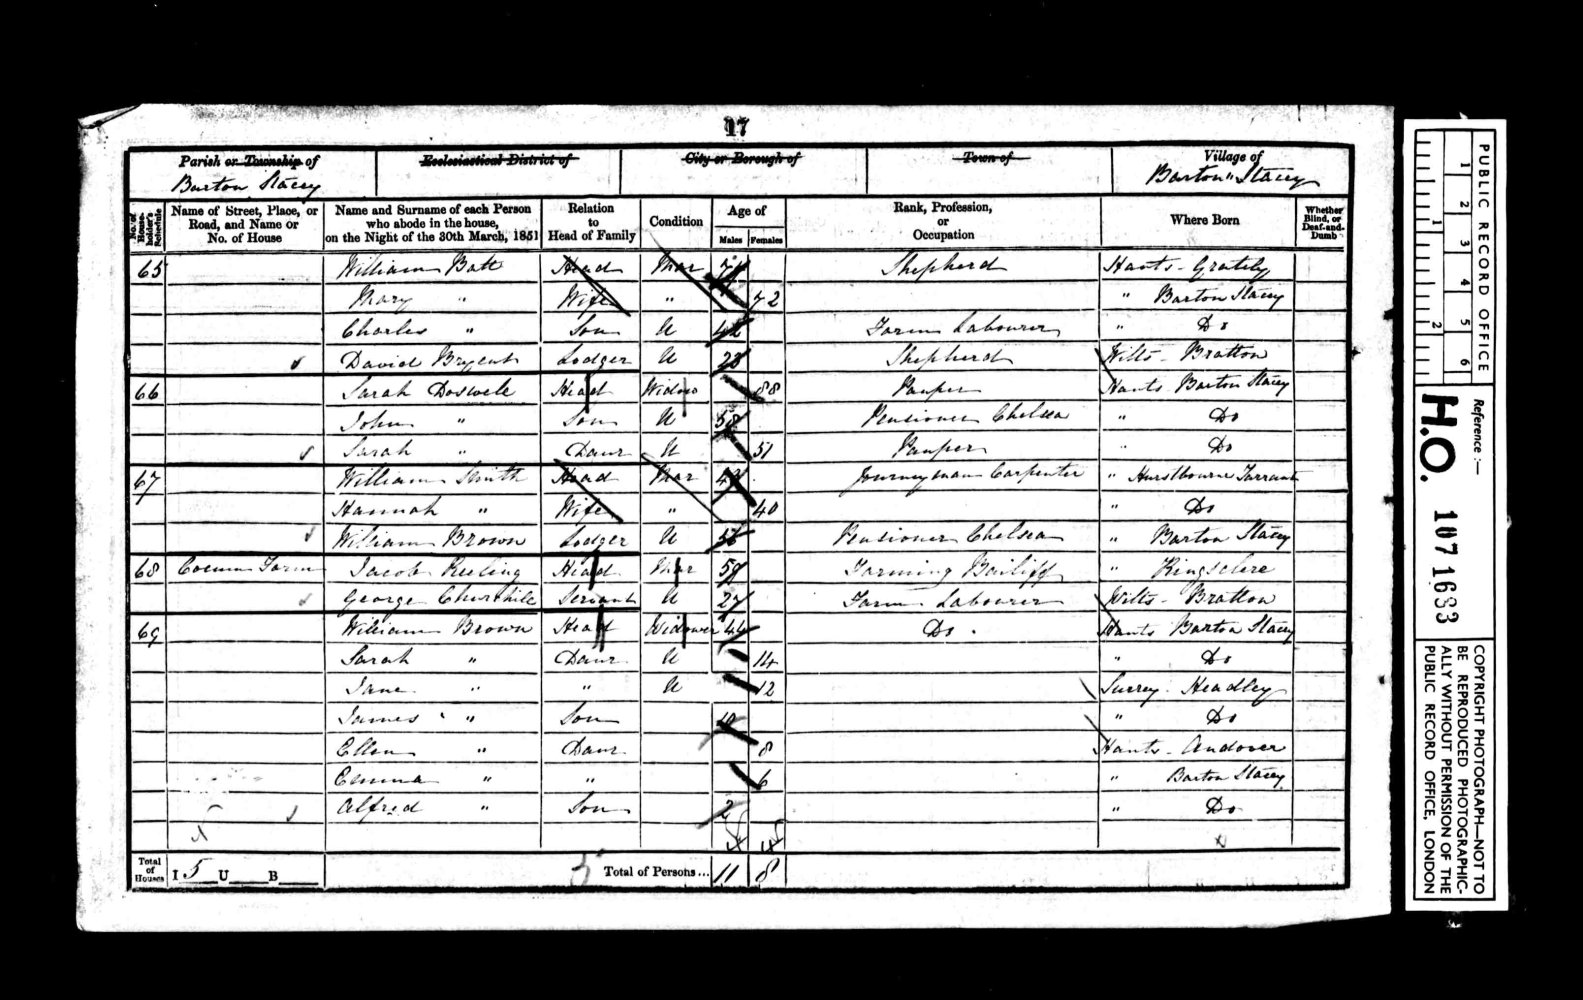 17
Parish or Township of Ecclesiastical District of City or Borough of Town of Village of
Barton Stacey Barton Stacey
No. of House-holder's Schedule Name of Street, Place, or Road, and Name or No. of House Name and Surname of each Person who abode in the house, on the Night of the 30th March, 1851 Relation to Head of Family Condition Age of Males Females Rank, Profession, or Occupation Where Born Whether Blind, or Deaf-and-Dumb
65 William Batt Head Mar 71 Shepherd Hants - Grately
Mary " Wife " 72 " Barton Stacey
Charles " Son U 42 Farm Labourer " Do
David Bryant Lodger U 28 Shepherd Wilts - Bratton
66 Sarah Doswell Head Widow 88 Pauper Hants Barton Stacey
John " Son U 58 Pensioner Chelsea " Do
Sarah " Daur U 51 Pauper " Do
67 William Smith Head Mar Journeyman Carpenter " Hurstbourne Tarrant
Hannah " Wife " 40 " Do
William Brown Lodger U Pensioner Chelsea " Barton Stacey
68 Farm Jacob Keeling Head Mar 59 Farming Bailiff " Kingsclere
George Churchill Servant U 27 Farm Labourer Wilts - Bratton
69 William Brown Head Widower 44 Do Hants Barton Stacey
Sarah " Daur U 14 " Do
Jane " " U 12 Surrey - Headley
James " Son 10 " Do
Ellen " Daur 8 Hants - Andover
Emma " " 6 " Barton Stacey
Alfred " Son 2 " Do
Total of Houses I 5 U B Total of Persons... 11 8
PUBLIC RECORD OFFICE
1 2 3 4 5 6
1 2
Reference :—
H.O. 107 1683
COPYRIGHT PHOTOGRAPH—NOT TO
BE REPRODUCED PHOTOGRAPHIC-
ALLY WITHOUT PERMISSION OF THE
PUBLIC RECORD OFFICE, LONDON